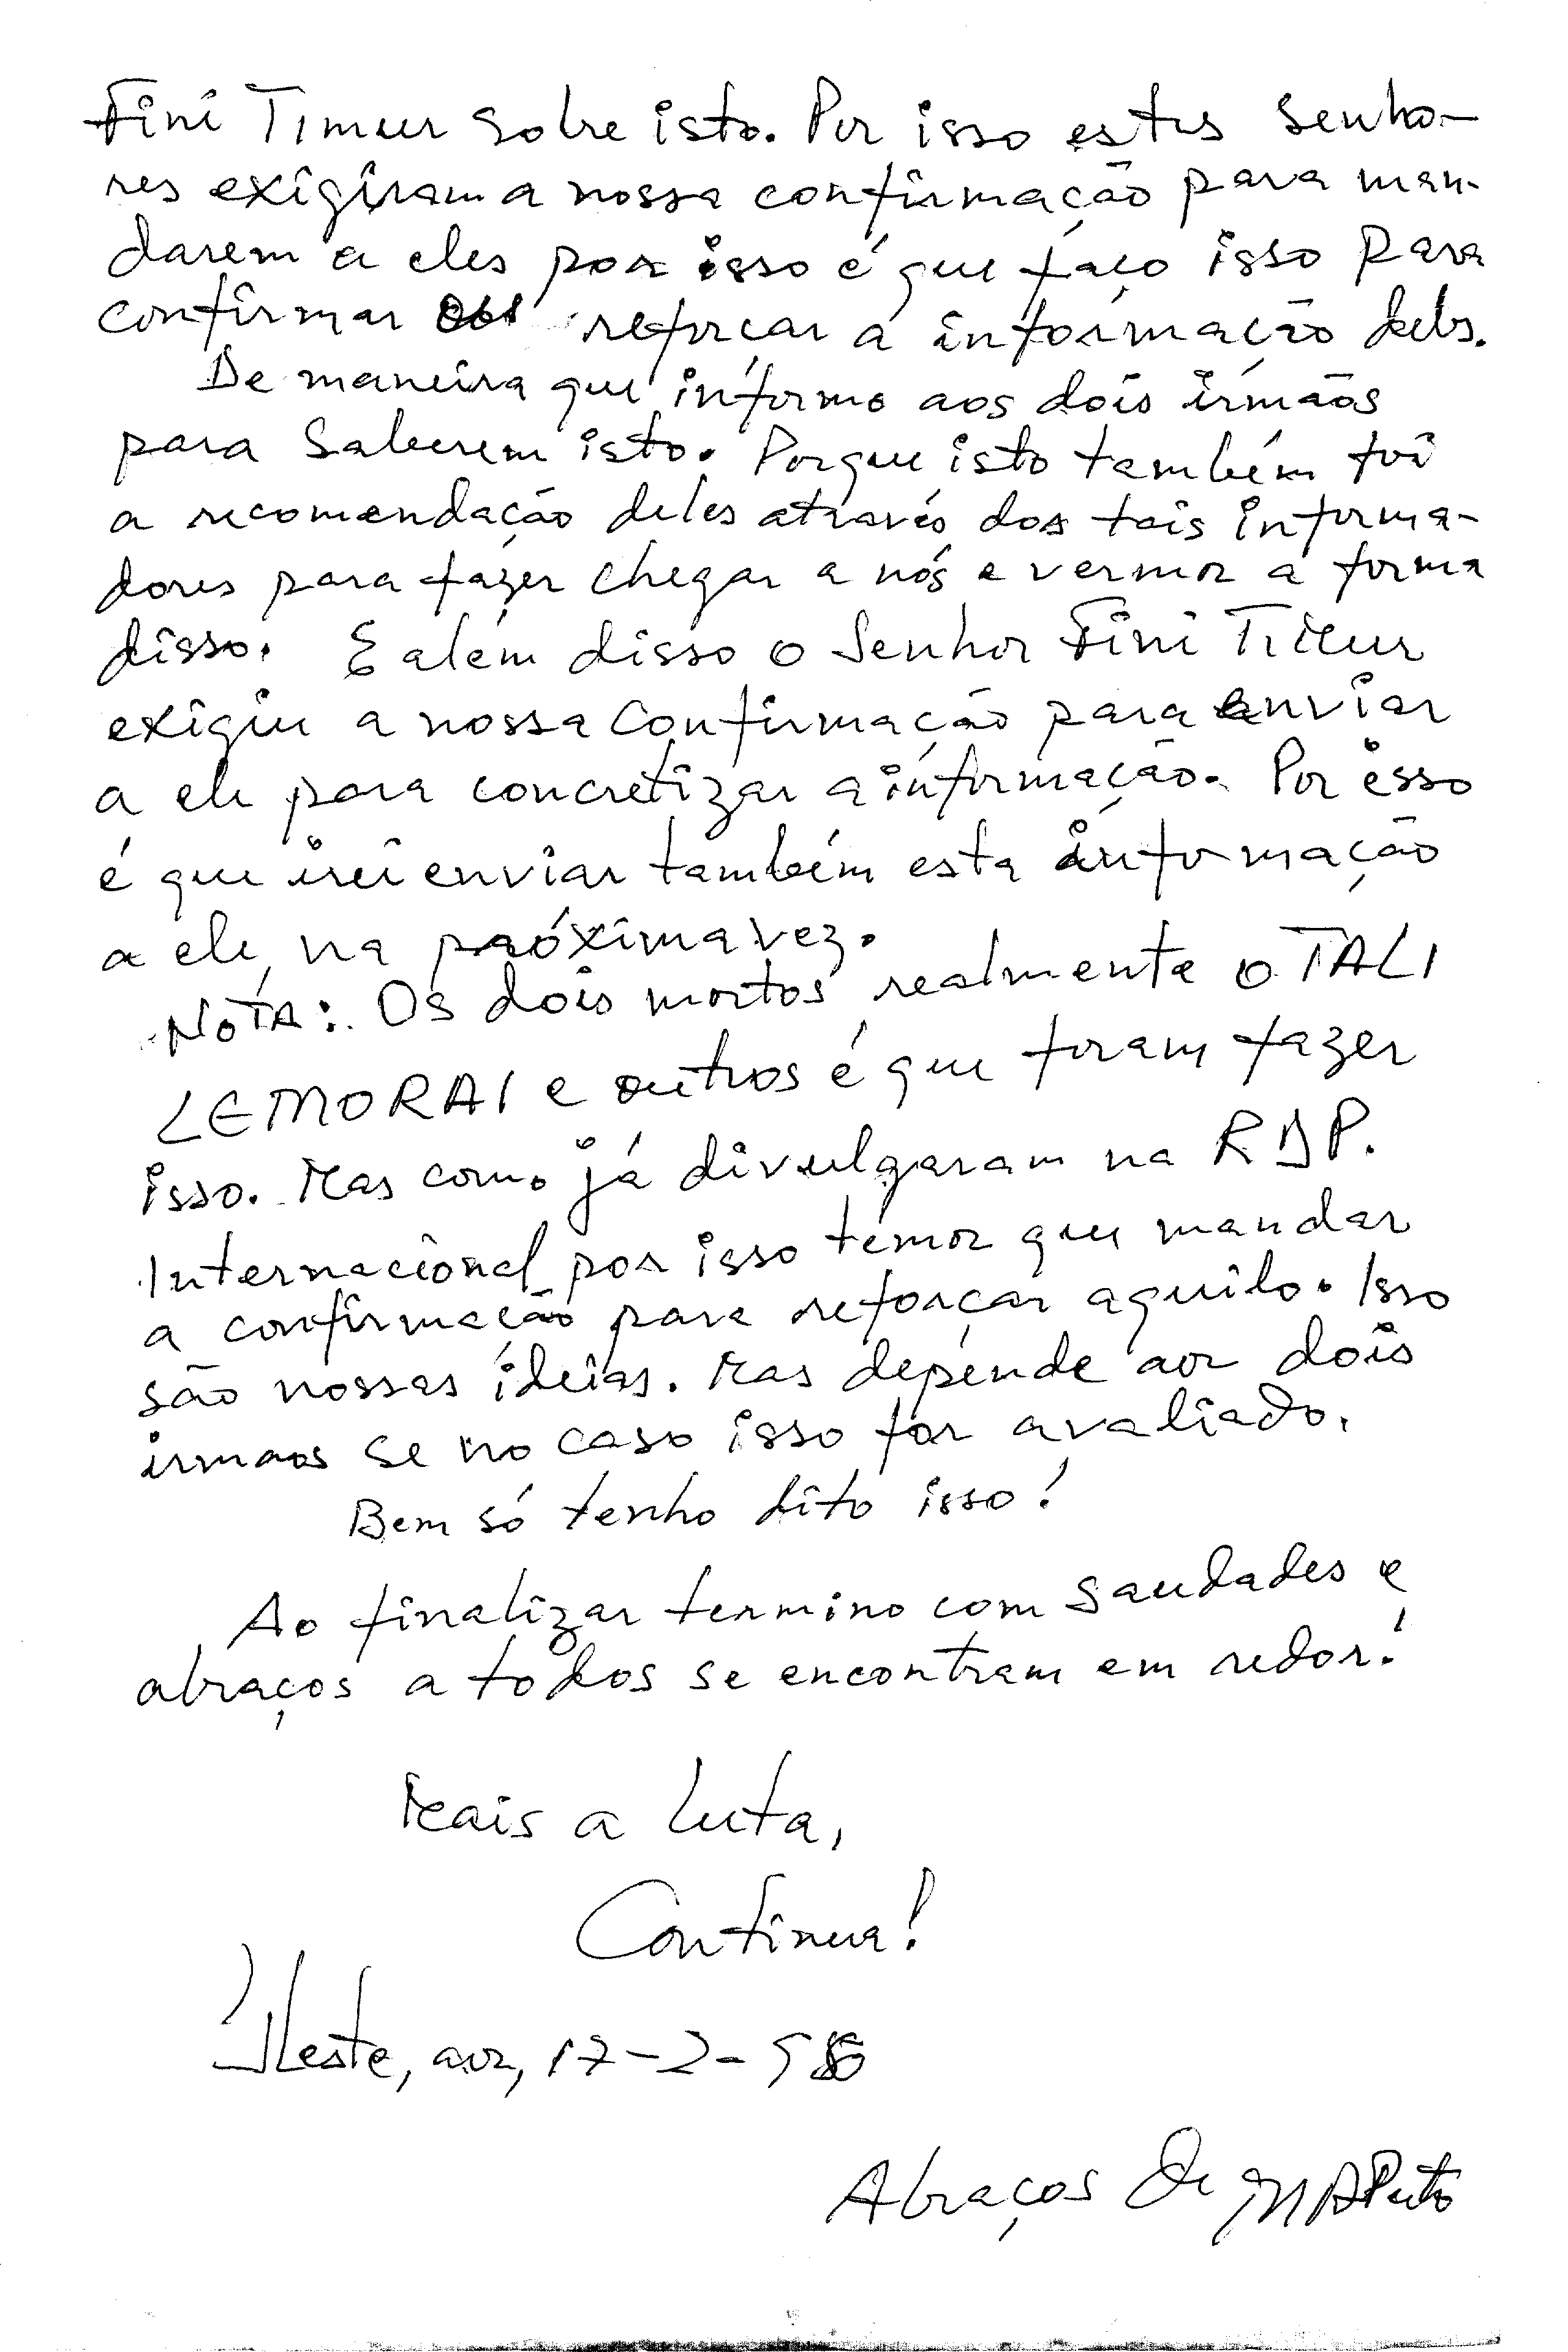 Fini Timur sobre isto. Por isso estes senho-
res exigiram a nossa confirmação para man-
darem a eles por isso é que faço isso para
confirmar reforçar a informação deles.
De maneira que informo aos dois irmãos
para saberem isto. Porque isto também foi
a recomendação deles através dos tais informa-
dores para fazer chegar a nós e vermos a forma
disso. E além disso o Senhor Fini Timur
exigiu a nossa confirmação para enviar
a ele para concretizar a informação. Por isso
é que irei enviar também esta informação
a ele, na próxima vez.
NOTA: Os dois mortos realmente o TALI
LEMORAI e outros é que foram fazer
isso. Mas como já divulgaram na RDP.
Internacional por isso temos que mandar
a confirmação para reforçar aquilo. Isso
são nossas ideias. Mas depende aos dois
irmãos se no caso isso for avaliado.
Bem só tenho dito isso!
Ao finalizar termino com saudades e
abraços a todos se encontram em redor!
Mais a luta,
Continua!
Leste, aos, 17-2-98
Abraços de